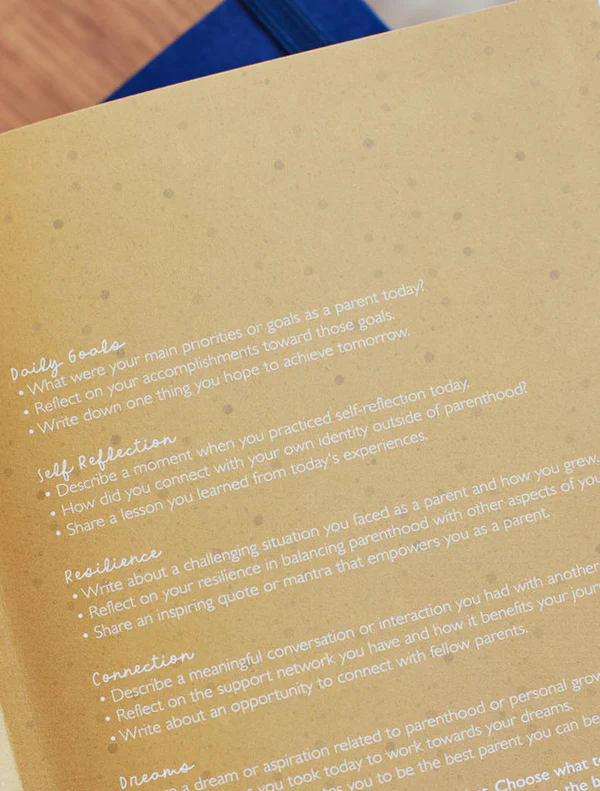 Daily Goals
• What were your main priorities or goals as a parent today?
• Reflect on your accomplishments toward those goals.
• Write down one thing you hope to achieve tomorrow.
Self Reflection
• Describe a moment when you practiced self-reflection today.
• How did you connect with your own identity outside of parenthood?
• Share a lesson you learned from today's experiences.
Resilience
• Write about a challenging situation you faced as a parent and how you grew.
• Reflect on your resilience in balancing parenthood with other aspects of
• Share an inspiring quote or mantra that empowers you as a parent.
Connection
• Describe a meaningful conversation or interaction you had with another
• Reflect on the support network you have and how it benefits your
• Write about an opportunity to connect with fellow parents.
Dreams
a dream or aspiration related to parenthood or personal
you took today to work towards your dreams.
you to be the best parent you can be
Choose what
the